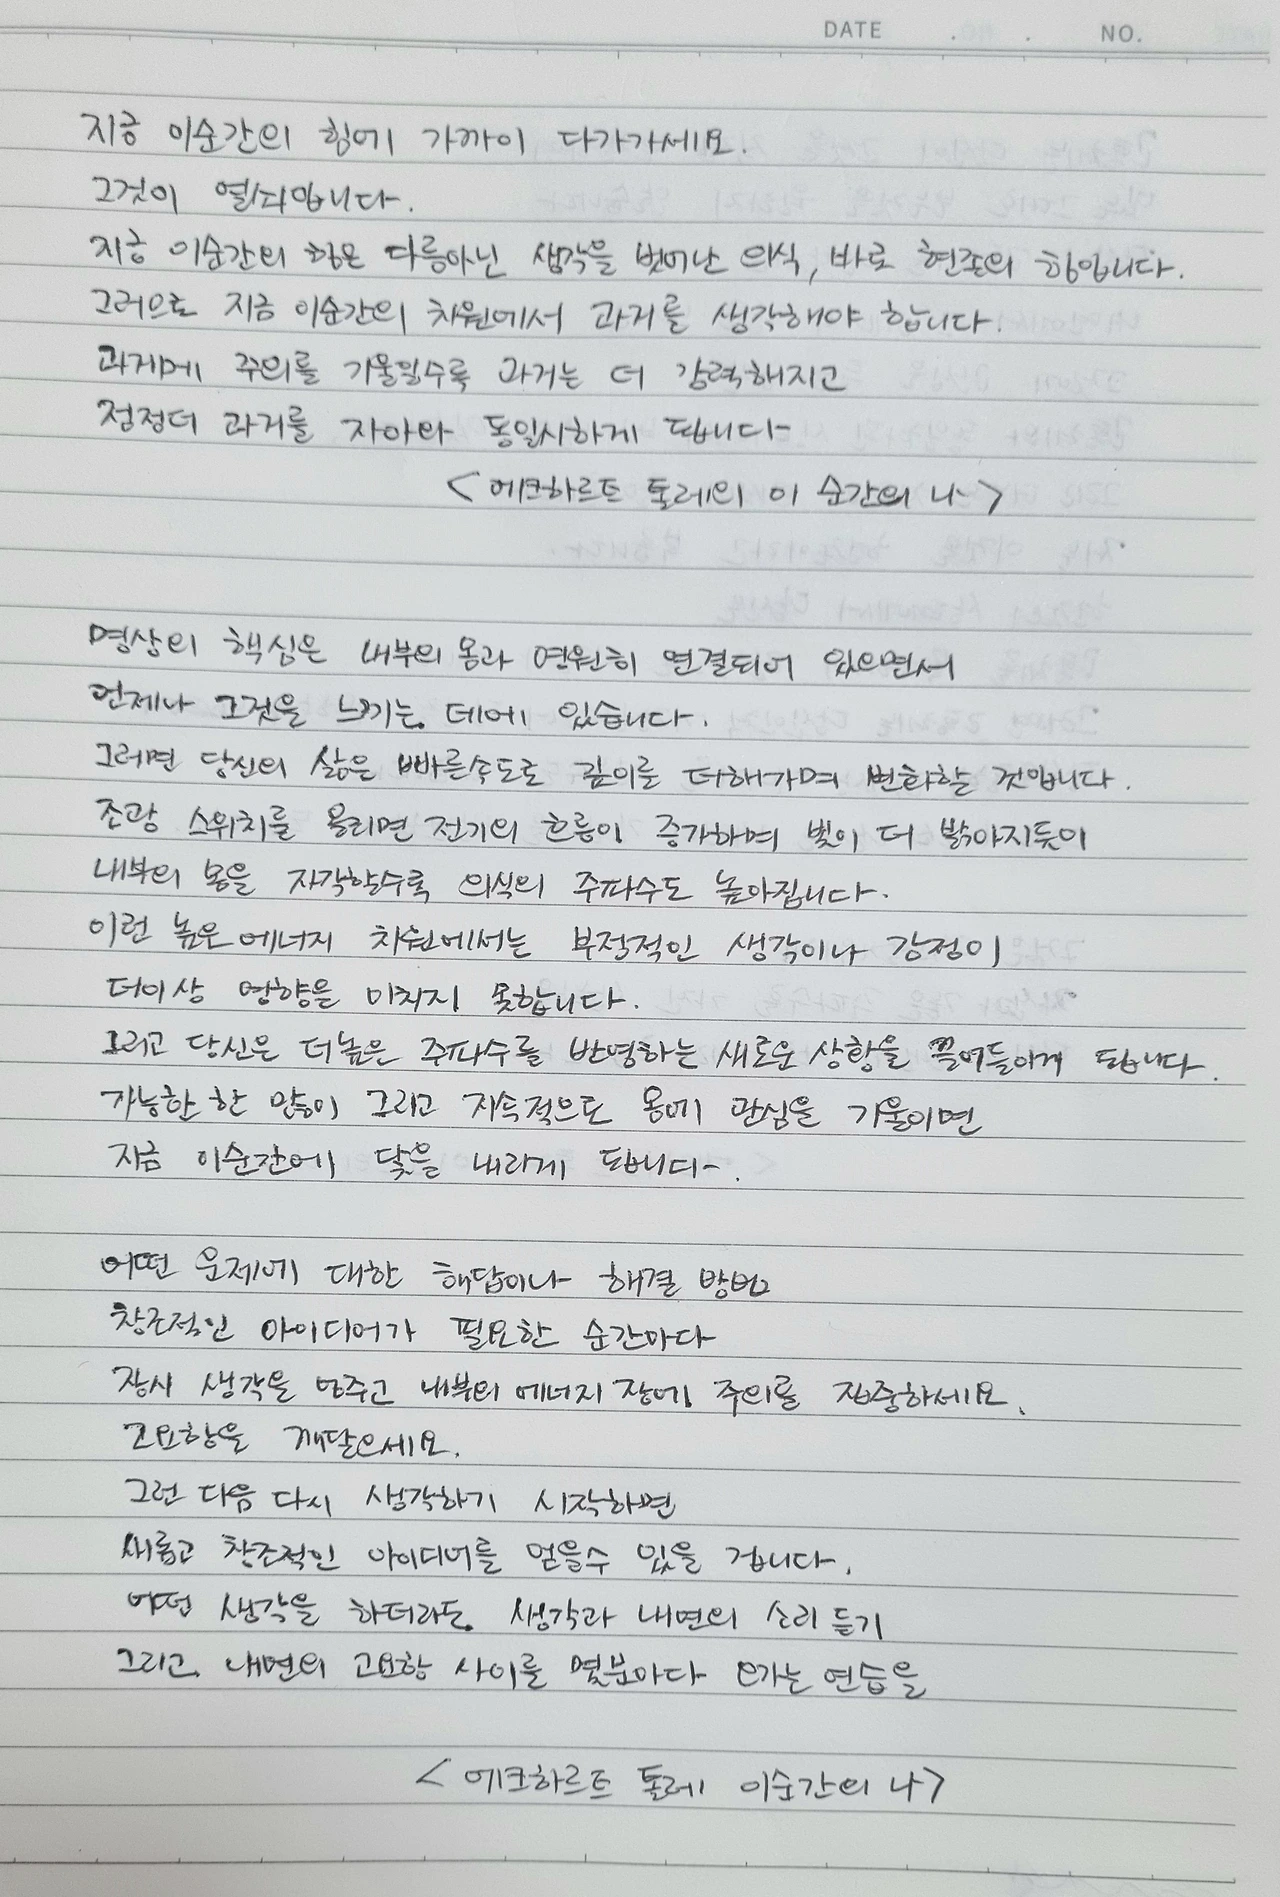 DATE . . NO.
지금 이순간의 힘에 가까이 다가가세요.
그것이 열쇠입니다.
지금 이순간의 힘은 다름아닌 생각을 벗어난 의식, 바로 현존의 힘입니다.
그러므로 지금 이순간의 차원에서 과거를 생각해야 합니다.
과거에 주의를 기울일수록 과거는 더 강력해지고
점점더 과거를 자아와 동일시하게 됩니다
<에크하르트 톨레의 이 순간의 나>
명상의 핵심은 내부의 몸과 영원히 연결되어 있으면서
언제나 그것을 느끼는 데에 있습니다.
그러면 당신의 삶은 빠른속도로 깊이를 더해가며 변화할 것입니다.
조광 스위치를 올리면 전기의 흐름이 증가하며 빛이 더 밝아지듯이
내부의 몸을 자각할수록 의식의 주파수도 높아집니다.
이런 높은 에너지 차원에서는 부정적인 생각이나 감정이
더이상 영향을 미치지 못합니다.
그리고 당신은 더높은 주파수를 반영하는 새로운 상황을 끌어들이게 됩니다.
가능한 한 많이 그리고 지속적으로 몸에 관심을 기울이면
지금 이순간에 닻을 내리게 됩니다.
어떤 문제에 대한 해답이나 해결 방법
창조적인 아이디어가 필요한 순간마다
잠시 생각을 멈추고 내부의 에너지 장에 주의를 집중하세요.
고요함을 깨달으세요.
그런 다음 다시 생각하기 시작하면
새롭고 창조적인 아이디어를 얻을수 있을 겁니다.
어떤 생각을 하더라도 생각과 내면의 소리 듣기
그리고 내면의 고요함 사이를 몇분마다 오가는 연습을
<에크하르트 톨레 이순간의 나>